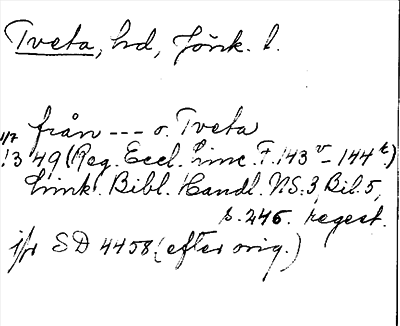 Tveta, hd, Jönk. l.
från --- o. Tveta
1/7
1349 (Reg. Eccl. Linc. F. 143v - 144r)
Link. Bibl. Handl. N.S. 3, Bil. 5,
s. 246. regest.
jfr SD 4458 (efter orig.)